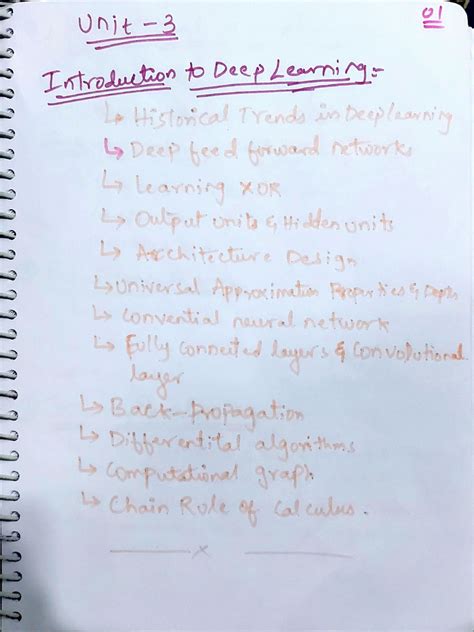 Unit - 3
01
Introduction to Deep Learning :-
↳ Historical Trends in Deep learning
↳ Deep feed forward networks
↳ Learning XOR
↳ Output units & Hidden units
↳ Architecture Design
↳ Universal Approximation Properties & Depth
↳ Convential neural network
↳ Fully Connected layers & Convolutional
layer
↳ Back-Propagation
↳ Differentital algorithms
↳ Computational graph
↳ Chain Rule of Calculus.
x